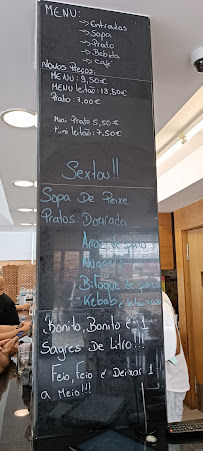 MENU:
→ Entradas
→ Sopa
→ Prato
→ Bebida
→ Café
Novos Preços:
MENU: 9,50€
MENU leitão: 13,50€
Prato: 7,00€
Mini Prato 5,50€
Mini leitão: 7,50€
Sexta!!
Sopa De Peixe
Pratos: Dourada
Arroz de
Bitoque de porco
Kebab e leitão
Bonito, Bonito é 1
Sagres De Litro!!!
Feio, Feio é Deixar 1
a Meio!!!